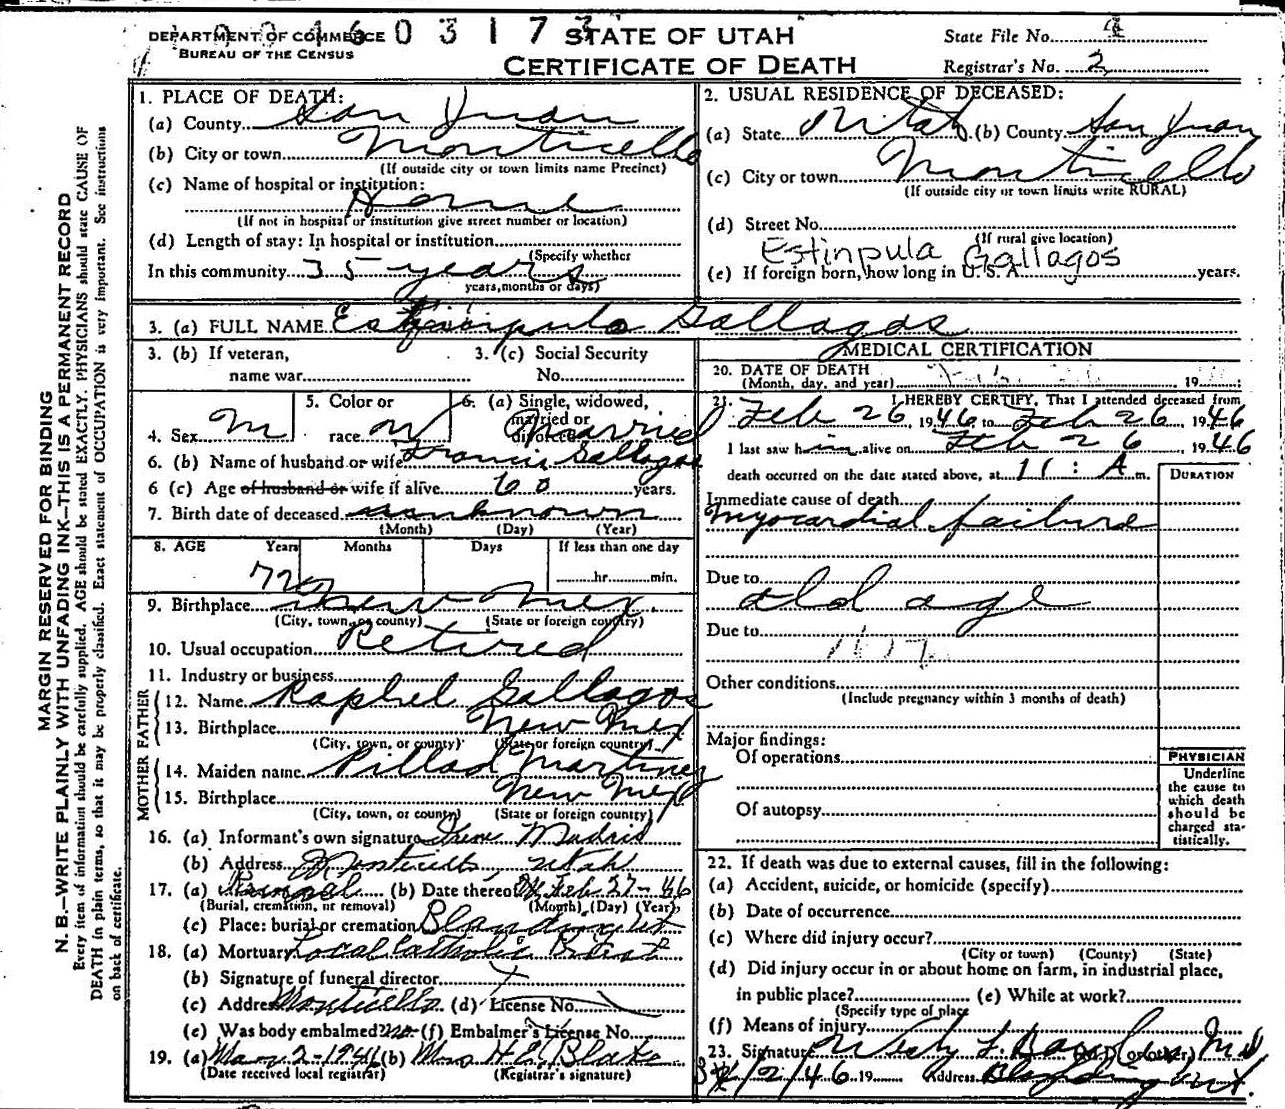 DEPARTMENT OF COMMERCE
BUREAU OF THE CENSUS
0 3 1 7 3
STATE OF UTAH
CERTIFICATE OF DEATH
State File No. 4
Registrar's No. 2
MARGIN RESERVED FOR BINDING
N. B.—WRITE PLAINLY WITH UNFADING INK—THIS IS A PERMANENT RECORD
Every item of information should be carefully supplied. AGE should be stated EXACTLY. PHYSICIANS should state CAUSE OF
DEATH in plain terms, so that it may be properly classified. Exact statement of OCCUPATION is very important. See instructions
on back of certificate.
1. PLACE OF DEATH:
(a) County San Juan
(b) City or town Monticello
(If outside city or town limits name Precinct)
(c) Name of hospital or institution:
Home
(If not in hospital or institution give street number or location)
(d) Length of stay: In hospital or institution
(Specify whether
In this community 35 years
years, months or days)
2. USUAL RESIDENCE OF DECEASED:
(a) State Utah (b) County San Juan
(c) City or town Monticello
(If outside city or town limits write RURAL)
(d) Street No.
(If rural give location)
Estinpula Gallagos
(e) If foreign born, how long in U. S. A. years.
3. (a) FULL NAME Gallagos
3. (b) If veteran,
name war
3. (c) Social Security
No.
4. Sex M
5. Color or
race W
6. (a) Single, widowed,
married or
divorced Married
6. (b) Name of husband or wife Francis Gallagos
6 (c) Age of husband or wife if alive 60 years.
7. Birth date of deceased unknown
(Month) (Day) (Year)
8. AGE Years Months Days If less than one day
72
hr. min.
9. Birthplace New Mex.
(City, town, or county) (State or foreign country)
10. Usual occupation Retired
11. Industry or business
FATHER
12. Name Raphel Gallagos
13. Birthplace New Mex
(City, town, or county) (State or foreign country)
MOTHER
14. Maiden name Pillad Martinez
15. Birthplace New Mex
(City, town, or county) (State or foreign country)
16. (a) Informant's own signature Madrid
(b) Address Monticello Utah
17. (a) Removal (b) Date thereof Feb 27-46
(Burial, cremation, or removal) (Month) (Day) (Year)
(c) Place: burial or cremation Blanding Ut
18. (a) Mortuary Local Catholic Priest
(b) Signature of funeral director
(c) Address Monticello (d) License No.
(e) Was body embalmed? no (f) Embalmer's License No.
19. (a) Mar 2-1946 (b) Mrs H.E. Blake
(Date received local registrar) (Registrar's signature)
MEDICAL CERTIFICATION
20. DATE OF DEATH
(Month, day, and year) 19
21. I HEREBY CERTIFY, That I attended deceased from
Feb 26, 1946, to Feb 26, 1946
I last saw him alive on Feb 26, 1946
death occurred on the date stated above, at 11: A m.
DURATION
Immediate cause of death
myocardial failure
Due to
old age
Due to
Other conditions
(Include pregnancy within 3 months of death)
Major findings:
Of operations
Of autopsy
PHYSICIAN
Underline
the cause to
which death
should be
charged sta-
tistically.
22. If death was due to external causes, fill in the following:
(a) Accident, suicide, or homicide (specify)
(b) Date of occurrence
(c) Where did injury occur?
(City or town) (County) (State)
(d) Did injury occur in or about home on farm, in industrial place,
in public place? (e) While at work?
(Specify type of place
(f) Means of injury
23. Signature (M.D. or other) Md
/2/46 19 Address Blanding Ut.